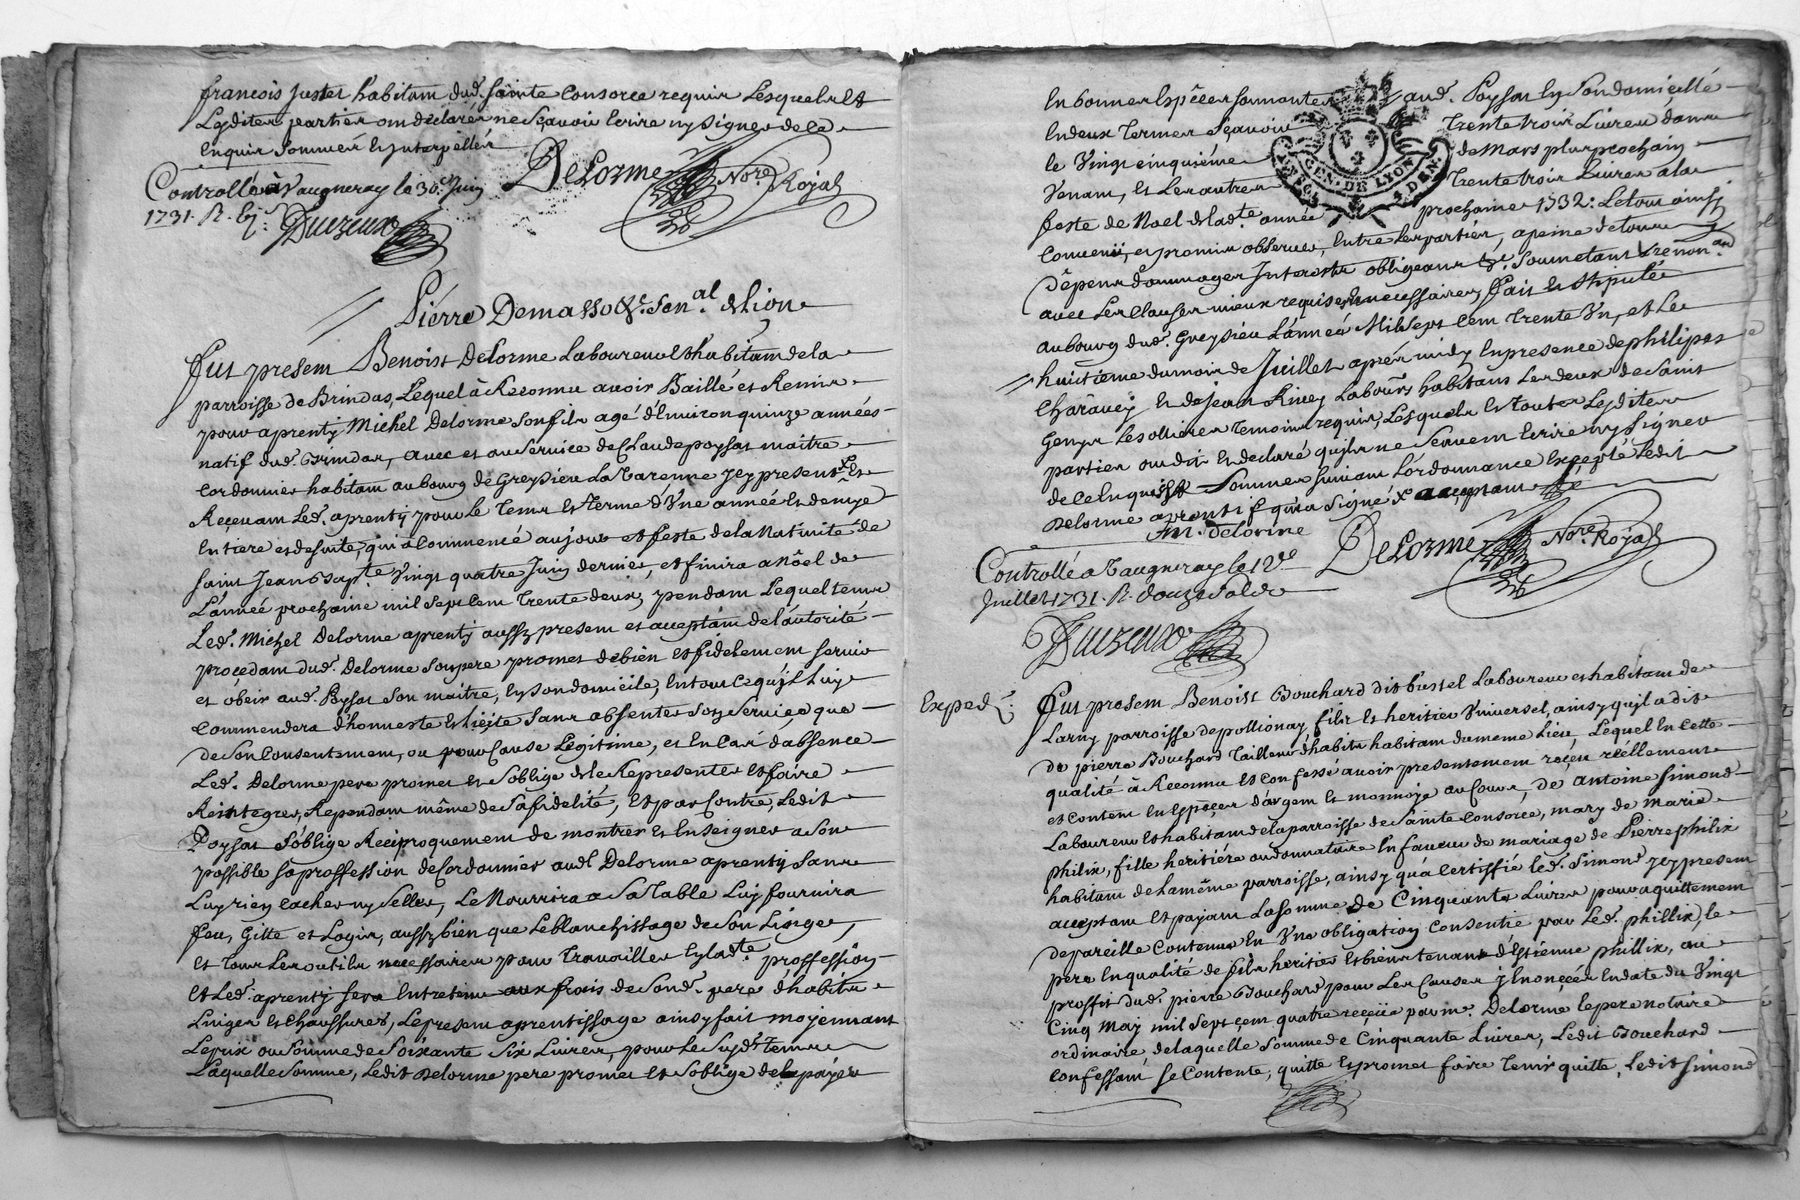 francois justet habitans dud. Sainte Consorce requis Lesquels et
Lesdites parties ont déclarér ne sçavoir Ecrire ny signer de ce
Enquis sommér et Interpellér
Delorme Nore. Royal
Controllé à Vaugneray le 30e. Juin
1731. R.
Duczeux
Pierre Demasso &c. Senal. de Lion
Fut present Benoist Delorme Laboureur et habitant de la
parroisse de Brindas, Lequel à Reconnu avoir Baillé et Remis
pour aprentif Michel Delorme son fils agé d'Environ quinze années
natif dud. Brindas, avec et au service de Claude poysat maitre
Cordonnier habitant au bourg de Greysieu La Varenne jcy present et
Reçevant Led. aprentij pour le tems et terme d'Une année et demye
Entiere et de suite, qui à Commencé au jour et feste de la Nativité de
saint Jean Bapte. Vingt quatre Juin dernier, et finira a Nöel de
L'année prochaine mil sept cent trente deux, pendant Lequel tems
Led. Michel Delorme aprentij aussy present et acceptant de l'autorité
procedant dud. Delorme son pere promet de bien et fidelement servir
et obeir aud. Poysat son maitre, en son domicile, en tout ce qu'jl Luy
Commendera d'honneste et licite sans absenter son service que
de son Consentement, ou pour Cause Legitime, et en Cas d'absence
Led. Delorme pere promet et s'oblige de le Representer et faire
Reintegrer, Rependant même de sa fidelité, et par Contre, Ledit
Poysat s'oblige Reciproquement de montrer et Enseigner a son
possible sa proffession de Cordonnier aud. Delorme aprentij sans
Luy rien Cacher ny seller, Le Nourrira a sa table Luy fournira
feu, Gitte et Logis, aussy bien que Le blanchissage de son Linge,
et tous Les outils necessaires pour travailler en lade. proffession
et Led. aprentij sera Entretenu aux frais de sond. pere d'habits
Linges et Chaussures, Le present aprentissage ainsy fait moyennant
Le prix ou somme de soixante six Livres, pour Le susd. tems
Laquelle somme, Ledit Delorme pere promet et s'oblige de payer
En bonnes Espêces sonnantes aud. Poysat en son domicille
En deux termes Sçavoir trente trois Livres dans
le Vingt cinquiême de Mars plus prochain
Venant, et Les autres trente trois Livres a la
feste de Noel de lade. année prochaine 1732: Le tout ainsy
Convenü, et promis observer, Entre Les parties, a peine de tous
Dêpens dommages Interests obligeans &c. Soumetant & renonan.
avec Les Clauses mieux requises et necessaires, fait et stipulé
au bourg dud. Greysieu L'année Mil sept Cent trente Un, et Le
huitiême du mois de Juillet aprés midy En presence de philipes
Charavey et de jean Rivey Labours. habitans Les deux de Saint
Genys Les ollieres temoins requis, Lesquels et toutes Lesdites
parties ont dit et declaré qu'jls ne scavent Ecrire ny signer
de ce Enquis et sommer suivant L'ordonnance Excepté Ledit
Delorme aprentif qui a signé x acceptant
m. delorme
Delorme Nore. Royal
Controllé a Vaugneray le 12e.
Juillet 1731. R. douze sols
Duczeux
GEN. DE LYON
Exped.
Fut present Benoist Bouchard dit bustel Laboureur et habitant de
Larny parroisse de pollionay, fils et heritier Universel, ainsy qu'jl a dit
de pierre Bouchard tailleur d'habits habitant du même Lieu, Lequel En cette
qualité à Reconnu et confessé avoir presentement reçeu réellement
et content En Espeçes d'argent et monnoye au Cours, de antoine simond
Laboureur et habitant de la parroisse de Sainte Consorce, mary de marie
philix, fille heritiére ou donnataire En faveur de mariage de Pierre philix
habitant de la même parroisse, ainsy qu'a Certiffié led. simond jcy present
acceptant et payant La somme de Cinquante Livres pour aquittement
de pareille Contenue En Une obligation Consentie par Led. phillix, le
pere En qualité de fils heritier et bienstenant d'Estienne phillix, au
proffit dud. pierre Bouchard pour Les Causes y Enoncées En date du Vingt
Cinq may mil sept cent quatre reçeüe par me. Delorme le pere notaire
ordinaire, de laquelle somme de Cinquante Livres, Ledit Bouchard
Confessant se Contente, quitte et promet faire tenir quitte, Ledit simond